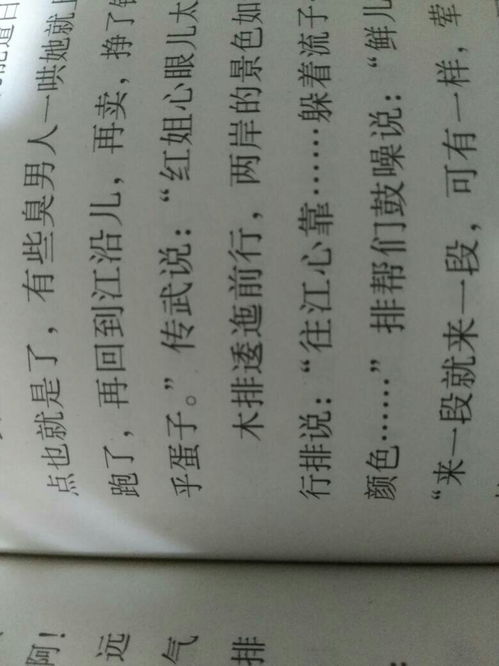 点也就是了，有些臭男人一哄她就上
跑了，再回到江沿儿，再卖，挣了钱
乎蛋子。”传武说：“红姐心眼儿太
木排逶迤前行，两岸的景色如
行排说：“往江心靠……躲着流子
颜色……”排帮们鼓噪说：“鲜儿
“来一段就来一段，可有一样，荤
阿！
远
气
排